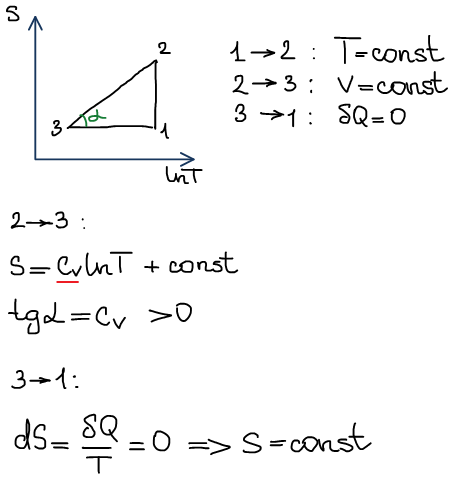 S
2
3 α 1
lnT
1 → 2 : T = const
2 → 3 : V = const
3 → 1 : δQ = 0
2 → 3 :
S = C_V lnT + const
tgα = C_V > 0
3 → 1 :
dS = δQ/T = 0 => S = const